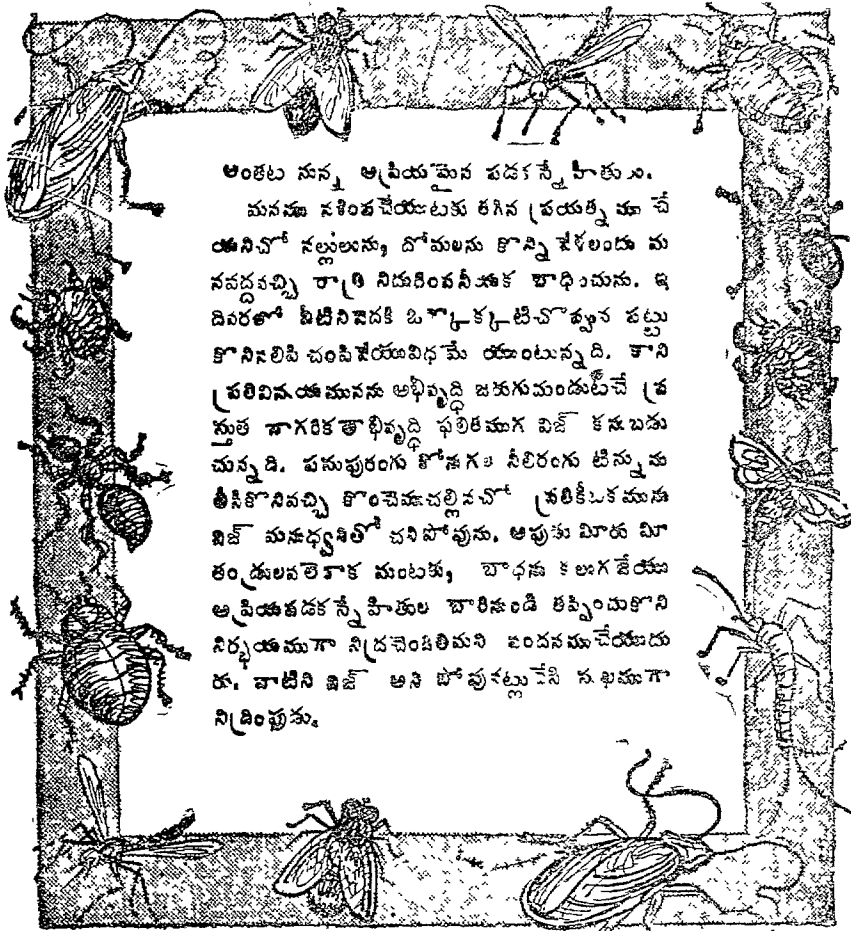 అంతట నున్న అప్రియమైన పడకస్నేహితులు.
మనము నశింపచేయుటకు తగిన ప్రయత్నము చే
యనిచో నల్లులును, దోమలును కొన్ని వేళలందు మ
నవద్దవచ్చి రాత్రి నిదురింపనీయక బాధించును. ఇ
దివరలో వీటినివెదకి ఒక్కొక్కటిచొప్పున పట్టు
కొనినలిపి చంపివేయువిధమే యుంటున్నది. కాని
ప్రతివిషయమునను అభివృద్ధి జరుగుచుండుటచే ప్ర
స్తుత నాగరికతాభివృద్ధి ఫలితముగ విజ్ కనుబడు
చున్నది. పసుపురంగు కోనుగల నీలిరంగు టిన్నును
తీసికొనివచ్చి కొంచెముచల్లినచో ప్రతికీటకమును
విజ్ మనుధ్వనితో చనిపోవును. అపుడు మీరు మీ
తండ్రులవలెగాక మంటకు, బాధను కలుగజేయు
అప్రియపడకస్నేహితుల బారినుండి తప్పించుకొని
నిర్భయముగా నిద్రచెందితిమని వందనముచేయుదు
రు. వాటిని విజ్ అని పోవునట్లుచేసి సుఖముగా
నిద్రింపుడు.